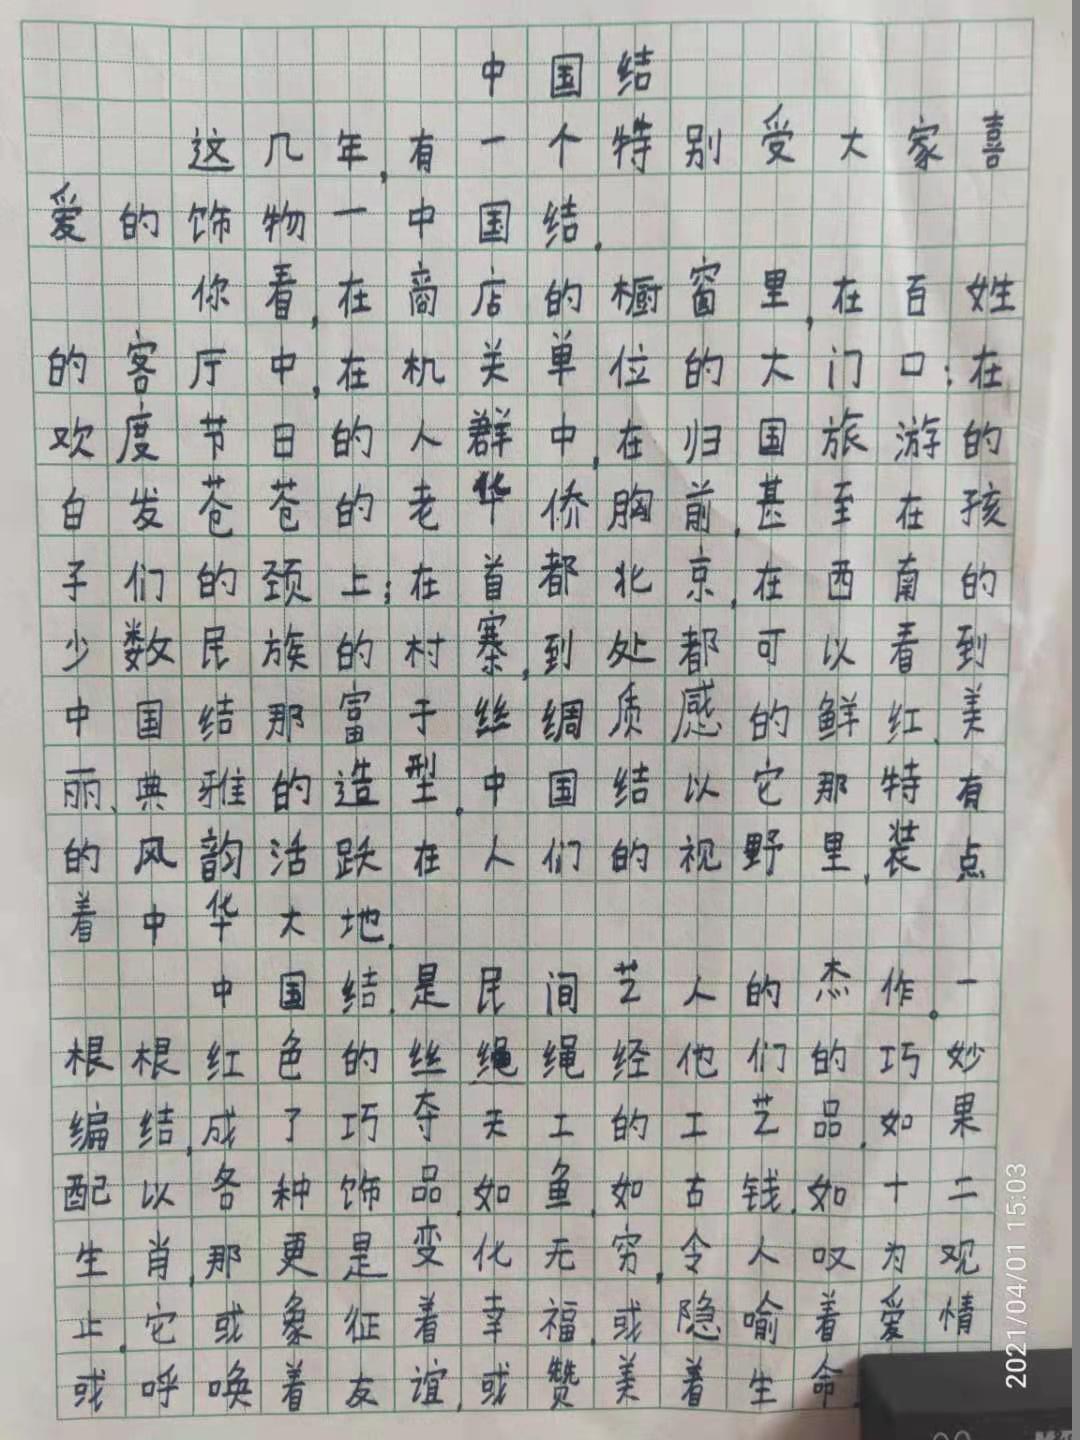 中国结
这几年,有一个特别受大家喜
爱的饰物一中国结.
你看,在商店的橱窗里,在百姓
的客厅中,在机关单位的大门口;在
欢度节日的人群中,在归国旅游的
白发苍苍的老华侨胸前,甚至在孩
子们的颈上;在首都北京,在西南的
少数民族的村寨,到处都可以看到
中国结那富于丝绸质感的鲜红、美
丽、典雅的造型.中国结以它那特有
的风韵活跃在人们的视野里,装点
着中华大地.
中国结,是民间艺人的杰作.一
根根红色的丝绳绳经他们的巧妙
编结,成了巧夺天工的工艺品,如果
配以各种饰品,如鱼,如古钱,如十二
生肖,那更是变化无穷,令人叹为观
止.它或象征着幸福,或隐喻着爱情
或呼唤着友谊,或赞美着生命
2021/04/01 15:03